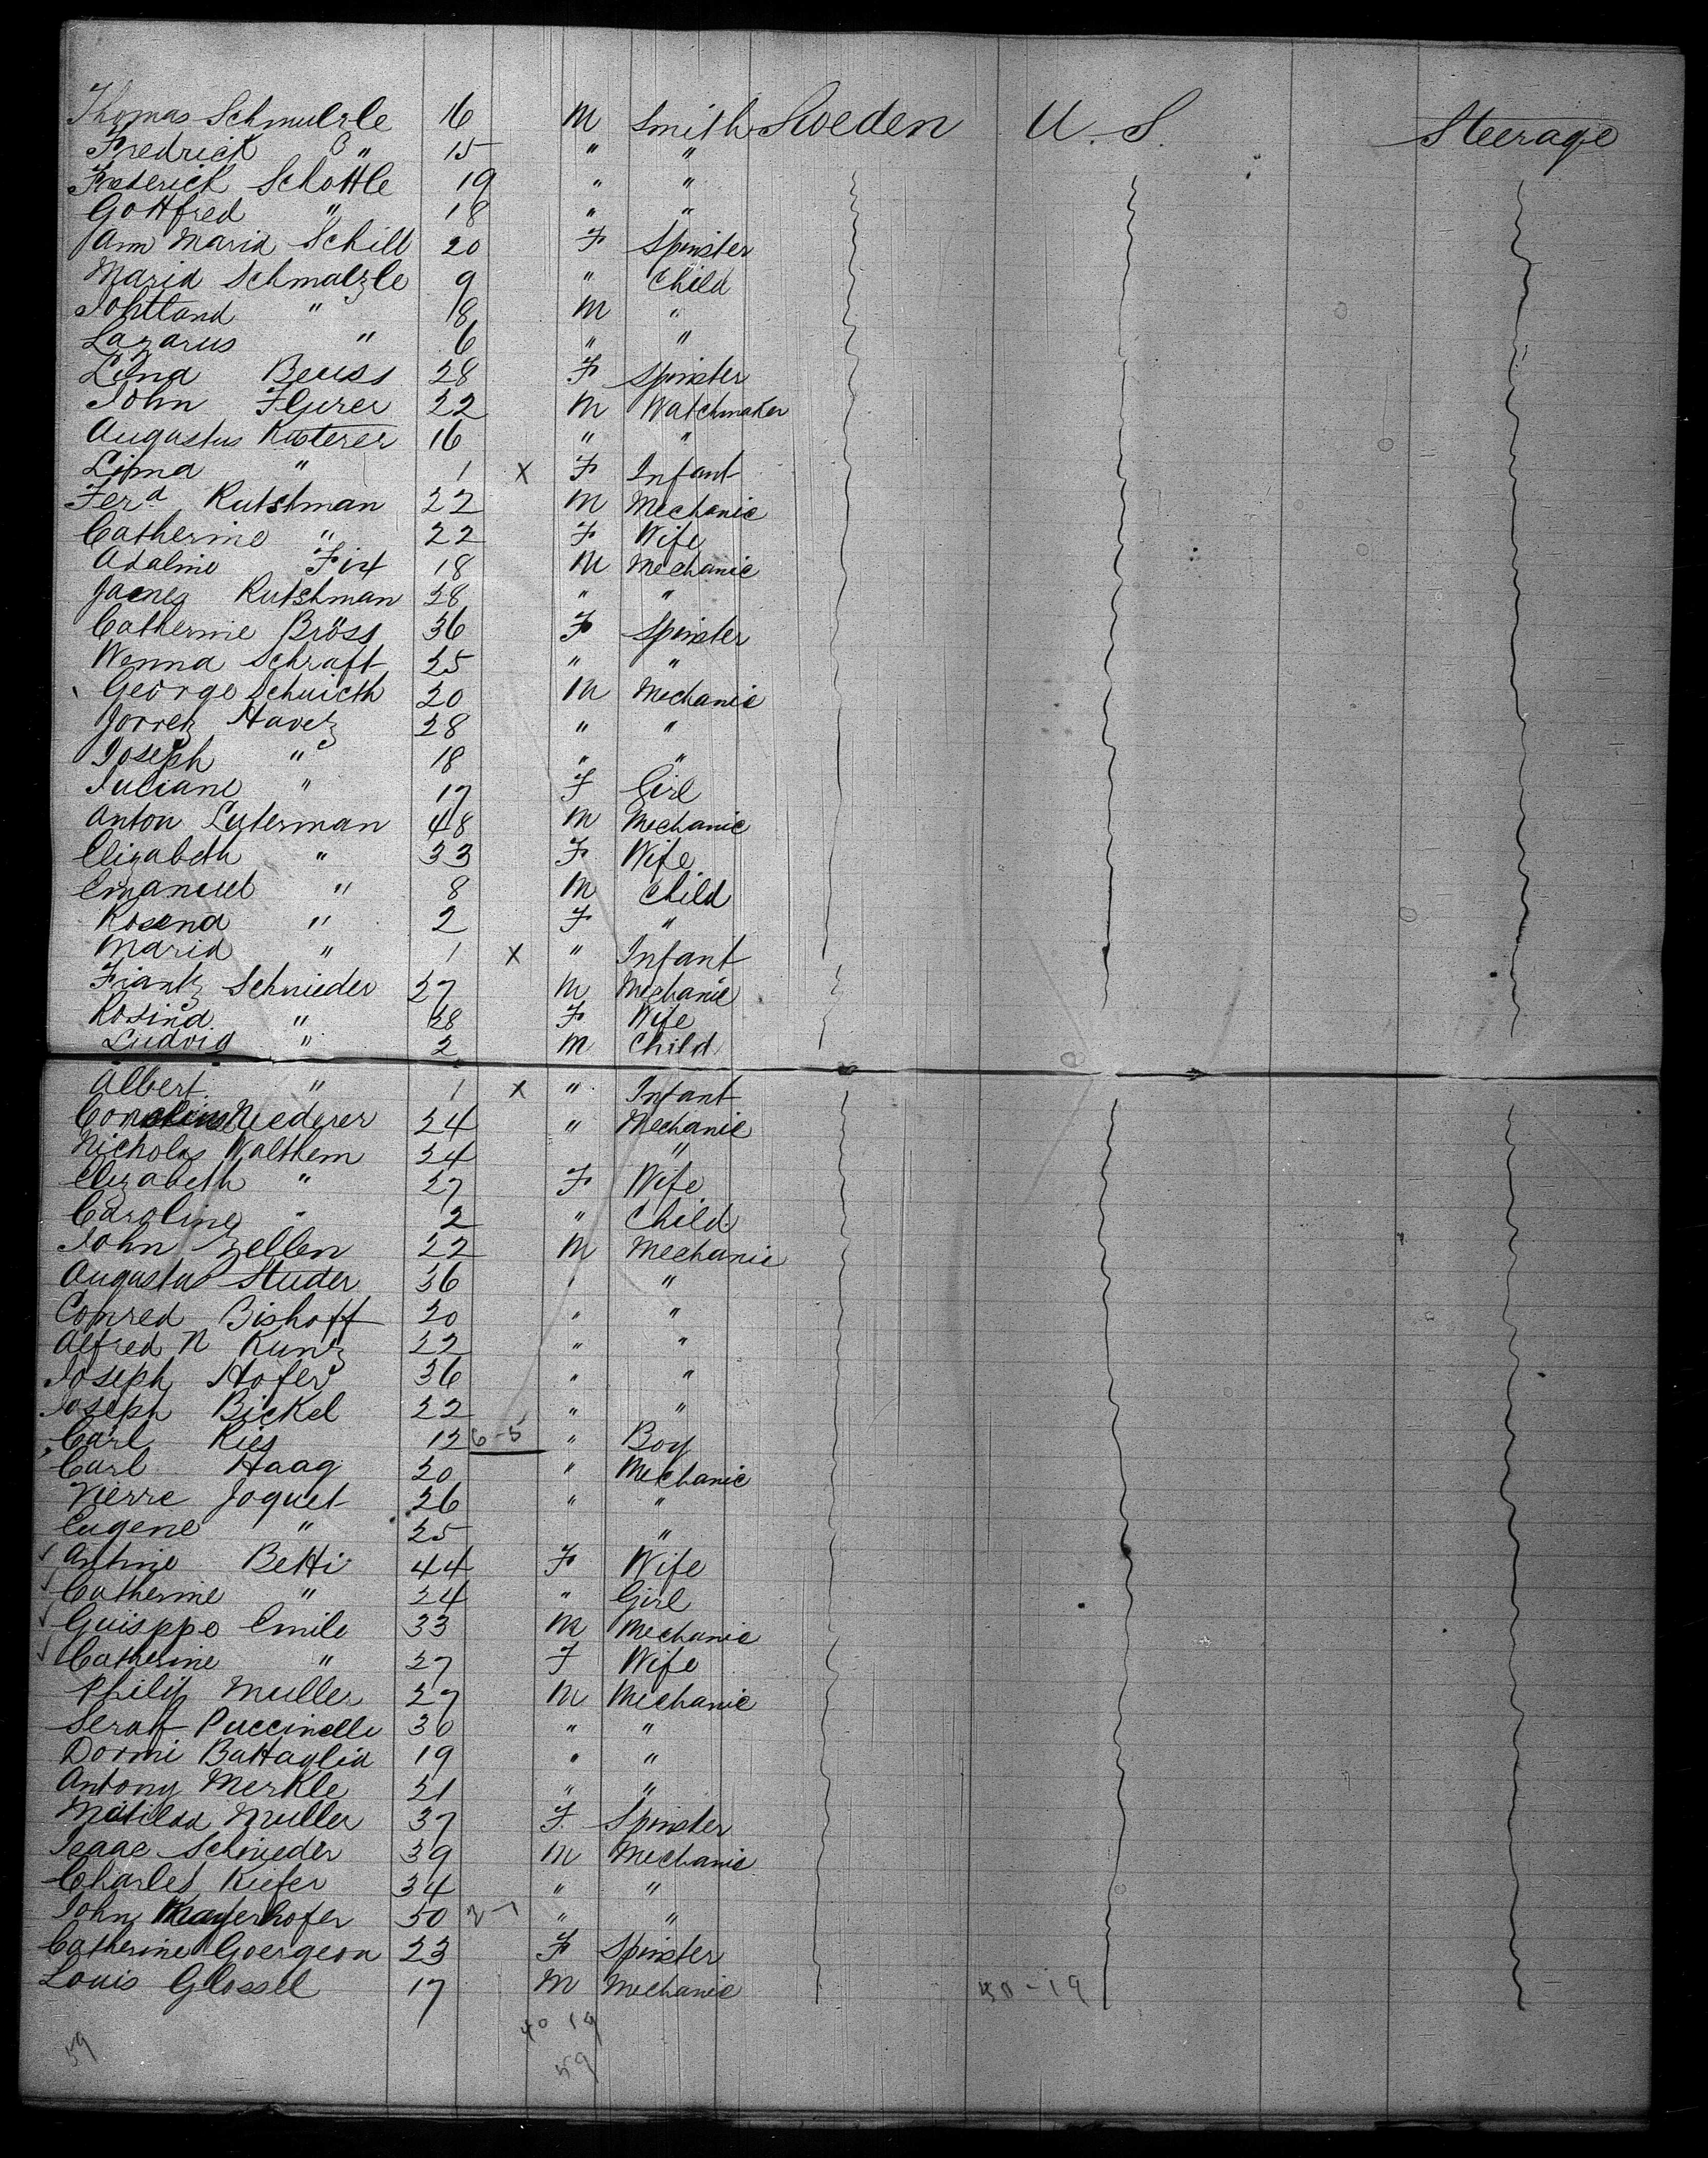 Thomas Schmulzle 16 M Smith Sweden U. S. Steerage
Fredrick " 15 " "
Frederick Schottle 19 " "
Gottfred " 18 " "
Ann Maria Schill 20 F Spinster
Maria Schmalzle 9 " Child
" 8 M "
Lazarus " 6 " "
Lena Beuss 28 F Spinster
John 22 M Watchmaker
Augastus Kusterer 16 " "
Lima " 1 x F Infant
Ferd Rutshman 22 M Mechanic
Catherine " 22 F Wife
Adaline Fix 18 M Mechanic
Rutshman 28 " "
Catherine Bröss 36 F Spinster
Wenna Schraft 25 " "
George Schuicth 20 M Mechanic
Havez 28 " "
Joseph " 18 " "
Juliane " 17 F Girl
Anton Luterman 48 M Mechanic
Elizabeth " 33 F Wife
Emanuel " 8 M Child
Rosena " 2 F "
Maria " 1 x " Infant
Frantz Schnieder 27 M Mechanic
Rosina " 28 F Wife
Ludvig " 2 M Child
Albert " 1 x " Infant
Nederer 24 " Mechanic
Nicholas Walthem 24 "
Elizabeth " 27 F Wife
Caroline " 2 " Child
John Zellen 22 M Mechanic
Augastus Studer 36 " "
Conred Bishoff 20 " "
Alfred N Kunz 22 " "
Joseph Hofer 36 " "
Joseph Bickel 22 " "
Carl Ries 12 6-5 " Boy
Carl Haag 20 " Mechanic
Pierre Joquet 26 " "
Eugene " 25 "
Antine Betti 44 F Wife
Catherine " 24 " Girl
Guisppe Emile 33 M Mechanic
Catherine " 27 F Wife
Philip Muller 27 M Mechanic
Seraf Puccinelli 30 " "
Dormi Battaglia 19 " "
Antony Merkle 21 " "
Matilda Muller 37 F Spinster
Isaac Schnieder 39 M Mechanic
Charles Kiefer 34 " "
John Mayerhofer 50 " "
Catherine Goergeon 23 F Spinster
Louis Glossel 17 M Mechanic
40 19
59 59